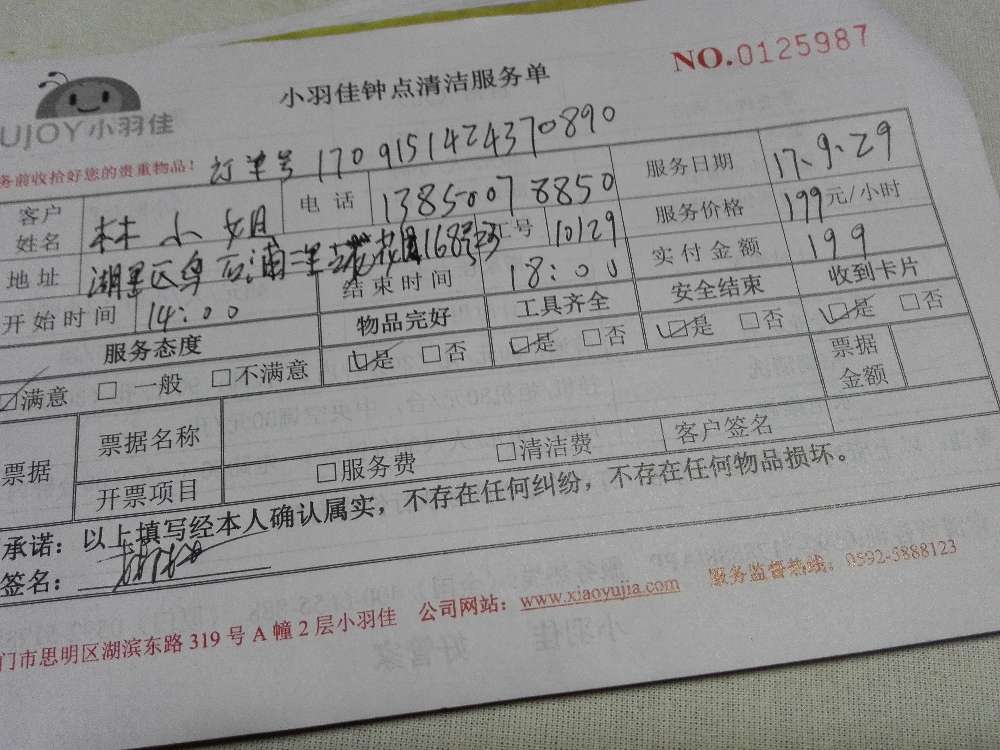 NO.0125987
小羽佳钟点清洁服务单
UJOY小羽佳
务前收拾好您的贵重物品！ 订单号 1709151424370890
客户姓名 林小姐 电话 13850078850 服务日期 17.9.29
地址 湖里区 168号 工号 10129 服务价格 199元/小时
开始时间 14:00 结束时间 18:00 实付金额 199
服务态度 物品完好 工具齐全 安全结束 收到卡片
☑满意 □一般 □不满意 ☑是 □否 ☑是 □否 ☑是 □否 ☑是 □否
票据 票据名称 票据金额
开票项目 □服务费 □清洁费 客户签名
承诺：以上填写经本人确认属实，不存在任何纠纷，不存在任何物品损坏。
签名：
门市思明区湖滨东路 319 号 A 幢 2 层小羽佳 公司网站：www.xiaoyujia.com 服务监督热线：0592-5888123